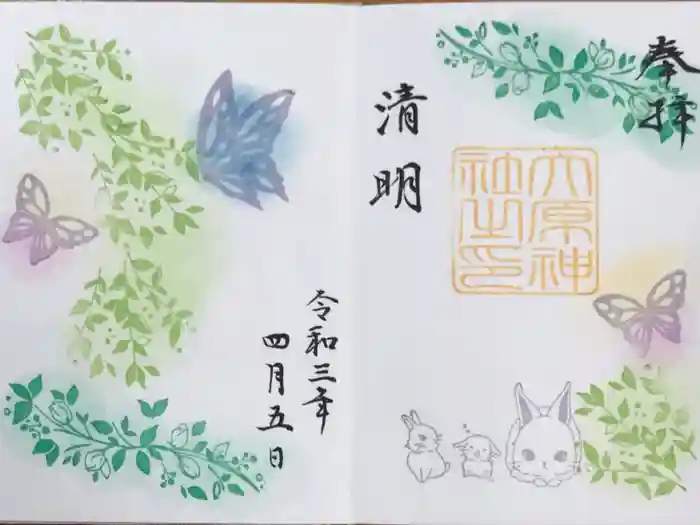 奉拝
清明
大原神
社之印
令和三年
四月五日